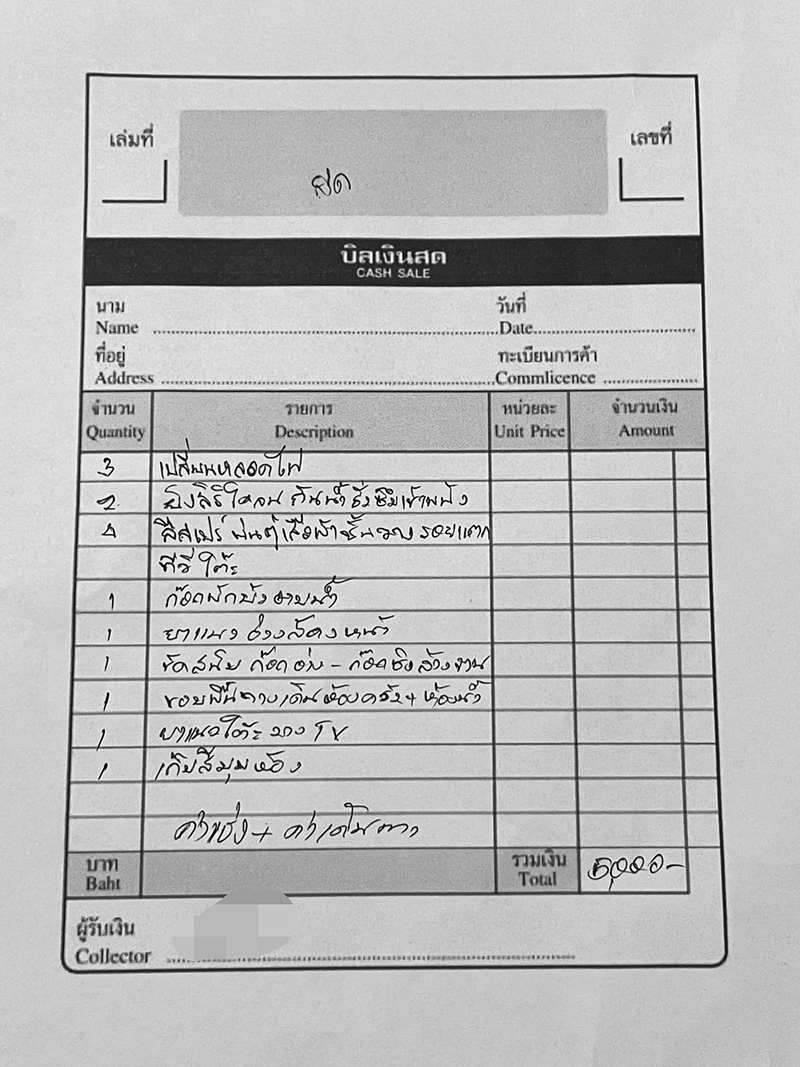 เล่มที่
เลขที่
สด
บิลเงินสด
CASH SALE
นาม
Name
วันที่
Date
ที่อยู่
Address
ทะเบียนการค้า
Commlicence
จำนวน รายการ หน่วยละ จำนวนเงิน
Quantity Description Unit Price Amount
3 เปลี่ยนหลอดไฟ
2 ยิงซิลิโคลน กันน้ำซึมเข้าผนัง
4 สีสเปร์ พ่นตู้เสื้อผ้าชั้นวาง รอยแตก
ทีวี โต๊ะ
1 ก๊อกฝักบัวอาบน้ำ
1 ยาแนว อ่างล้างหน้า
1 ขัดสนิม ก๊อกอ่าง - ก๊อกซิงล้างจาน
1 ขอบพื้นทางเดินห้องครัว + ห้องน้ำ
1 ยาแนวโต๊ะวาง TV
1 เก็บสีมุมห้อง
ค่าช่าง + ค่าเดินทาง
บาท รวมเงิน
Baht Total
ผู้รับเงิน
Collector